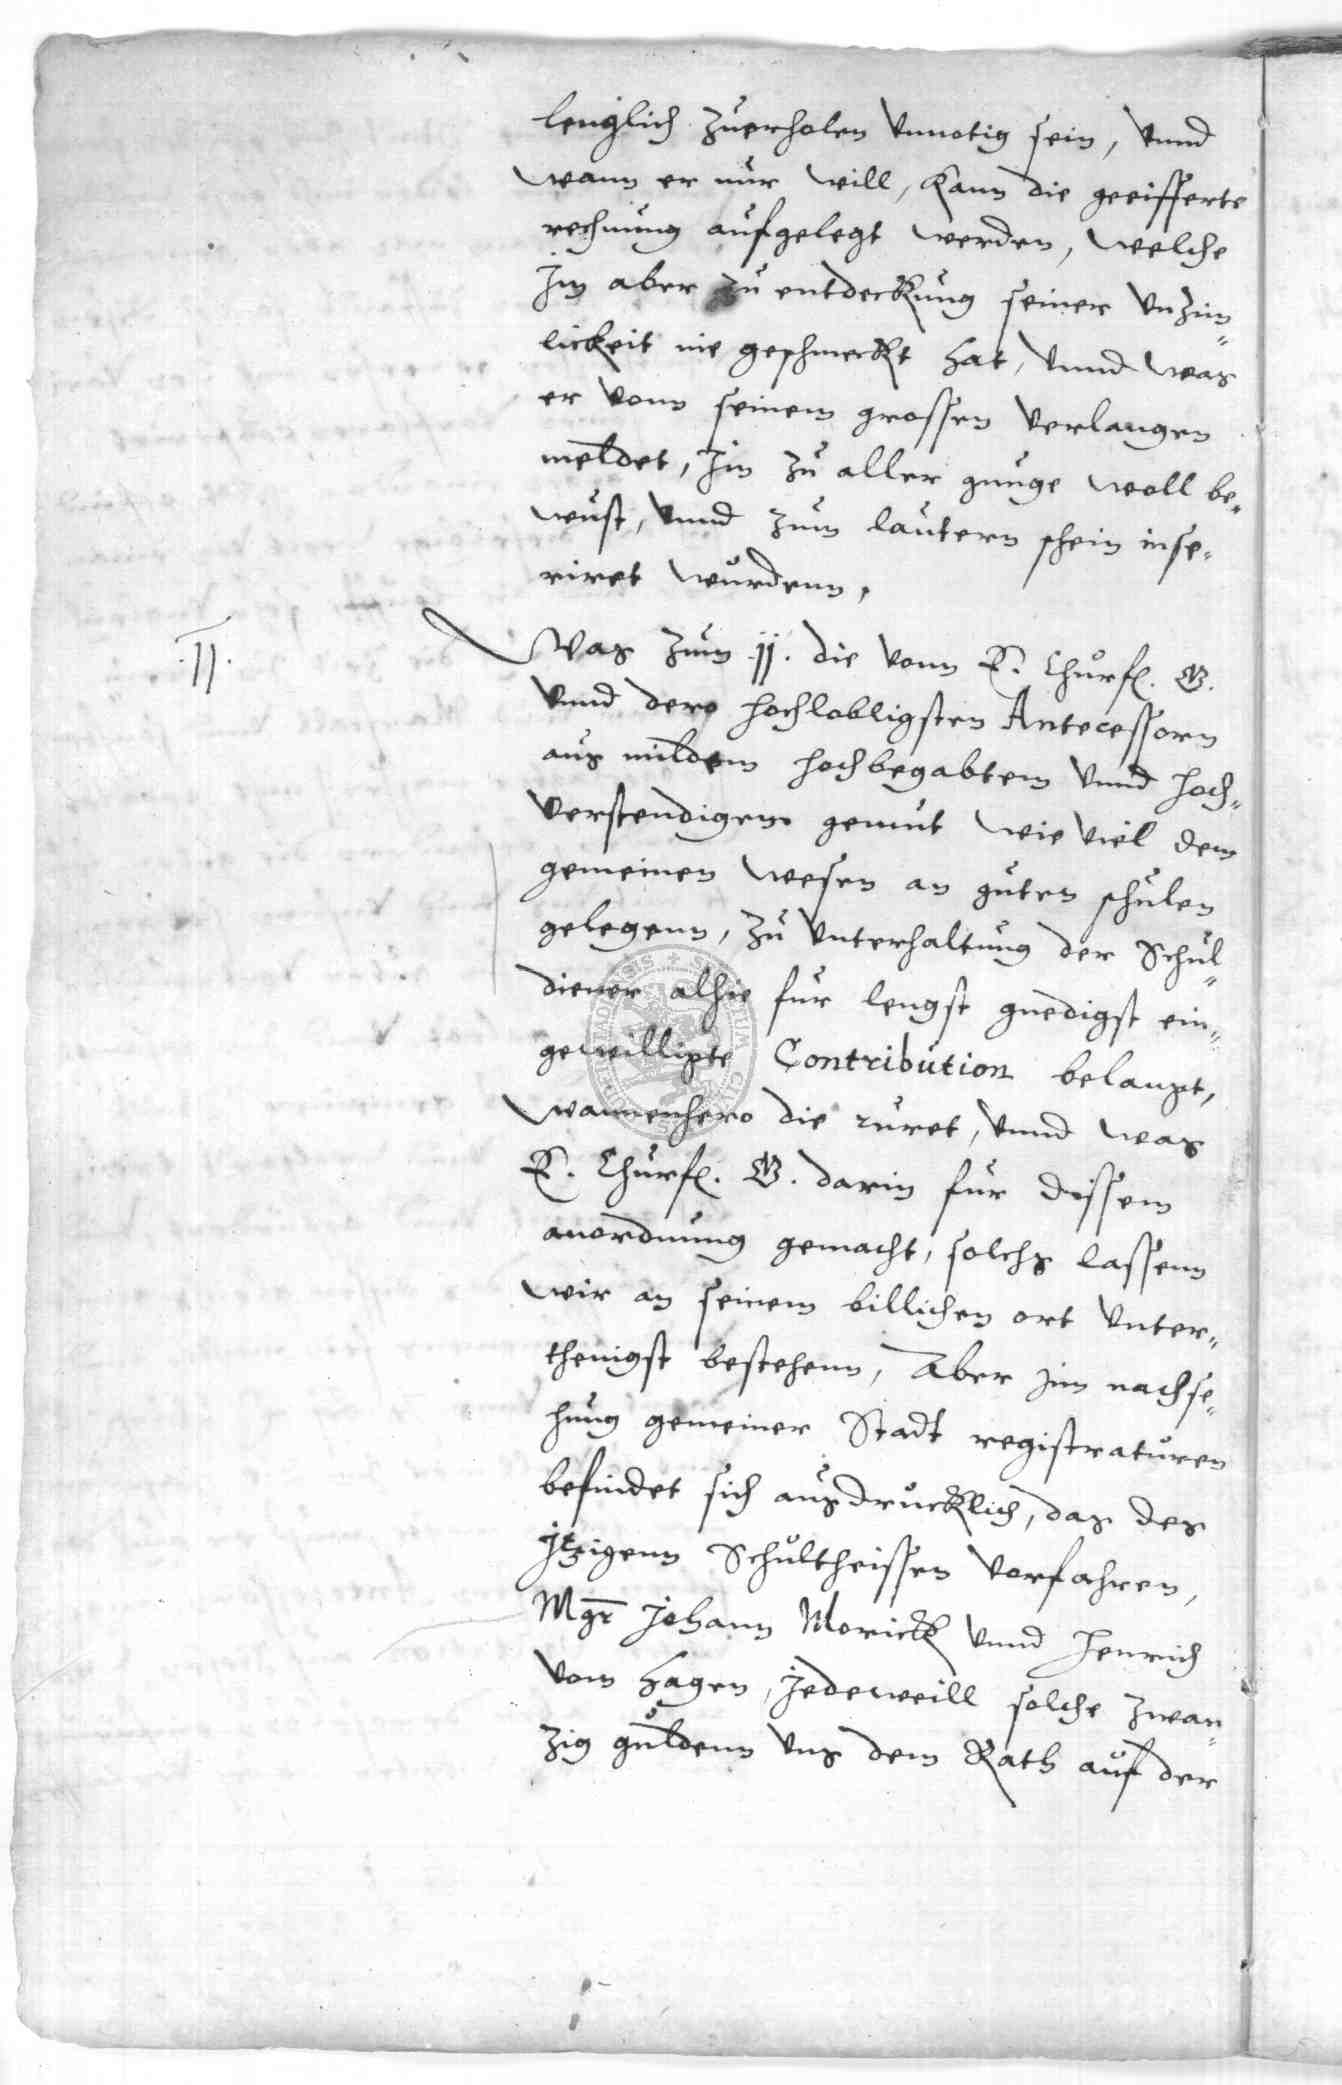 lenglich zuerholen vnnotig sein, vnnd
wann er nur will, kann die geeifferte
rechnung aufgelegt werden, welche
Jm aber zu entdeckung seiner vnzim„
lickeit nie geschmeckt hat, vnnd was
er vonn seinem grossen verlangen
meldet, Jm zu aller gnuge woll be„
wust, vnnd zum lautern schein inse„
riret wurdenn,
.II.
Was zum .jj. die vonn E. Churfl. G.
vnnd dero hochlobligsten Antecessorn
aus mildem hochbegabtem vnnd hoch„
verstendigem gemut wie viel dem
gemeinen wesen an guten schulen
gelegenn, zu vnterhaltung der Schul„
diener alhie fur lengst gnedigst ein„
gewilligte Contribution belangt,
wannenhero die ruret, vnnd was
E. Churfl. G. darin fur dissem
anordnung gemacht, solchs lassenn
wir an seinem billichen ort vnter„
thenigst bestehenn, Aber jm nachse„
hung gemeiner Stadt registraturen
befindet sich ausdrucklich, das des
Jtzigenn Schultheissen vorfahren,
Mgr Johann Morick vnnd Henrich
vom Hagen, jedeweill solche zwan„
zig guldenn vns dem Rath auf der